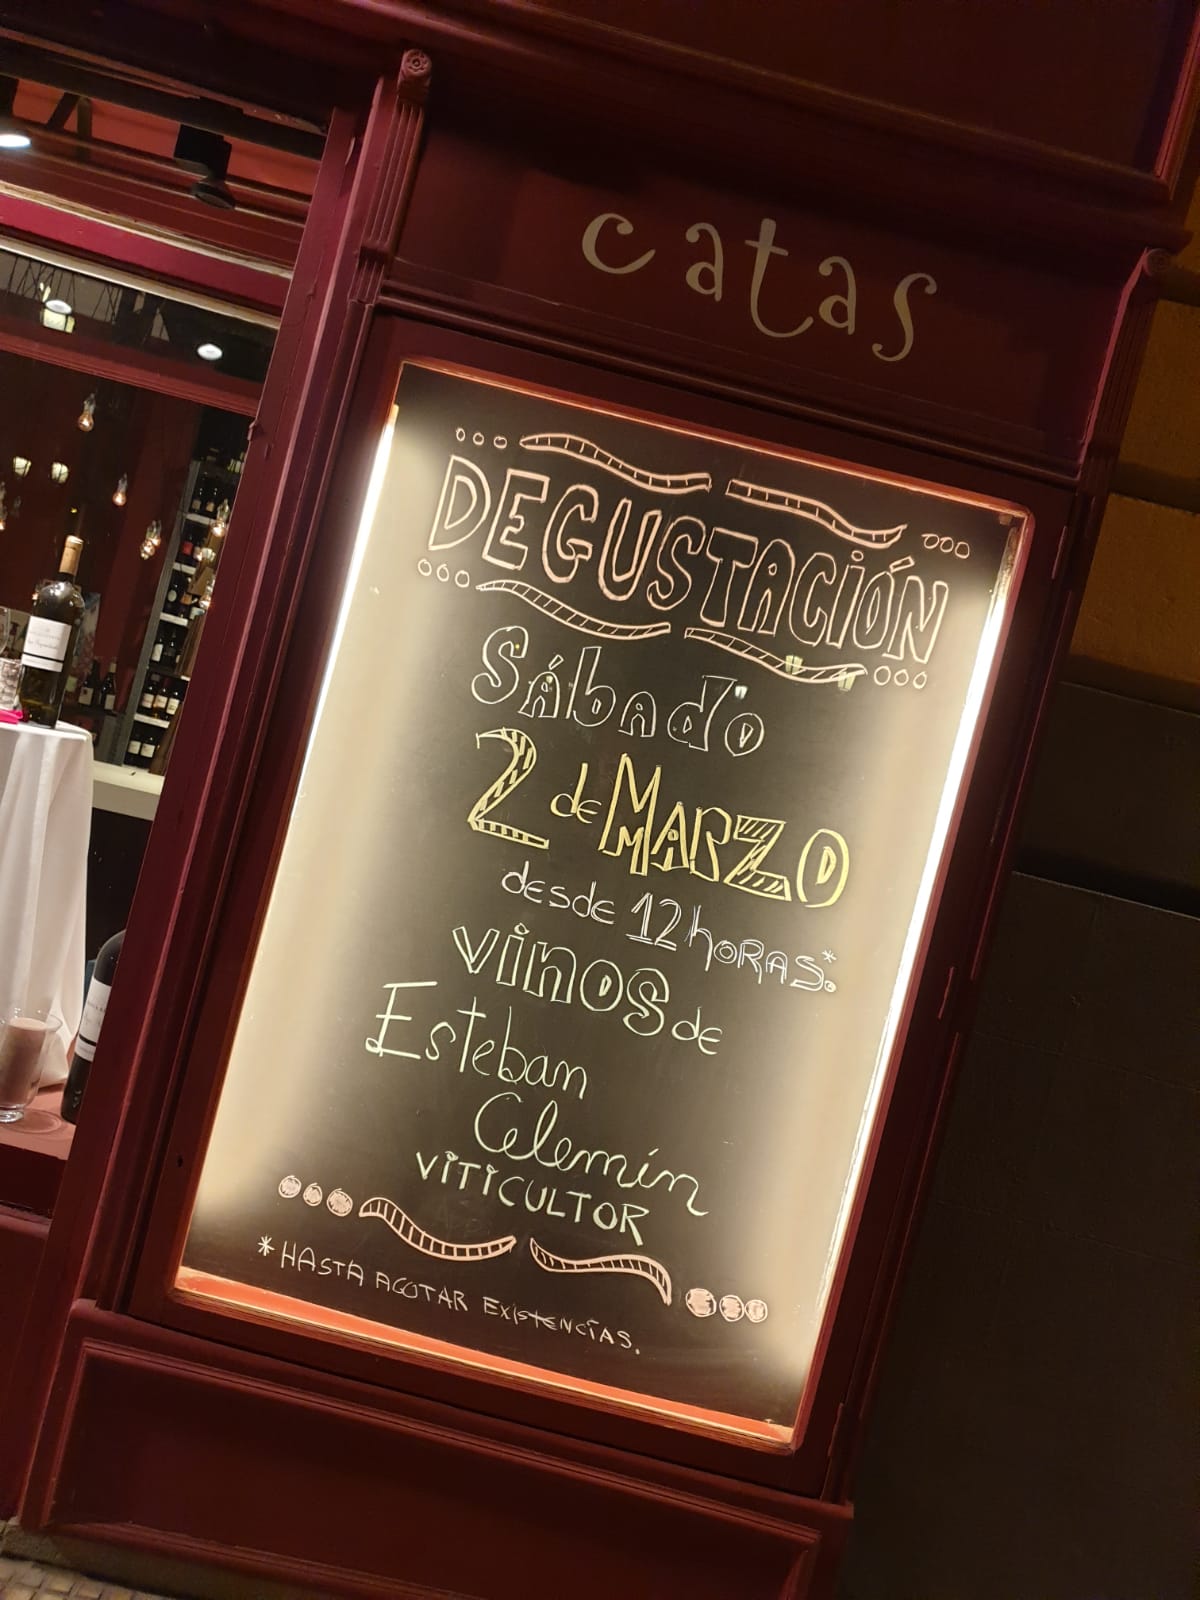 catas
DEGUSTACIÓN
Sábado
2 de MARZO
desde 12 horas.*
vinos de
Esteban
Celemín
VITICULTOR
* HASTA AGOTAR EXISTENCIAS.